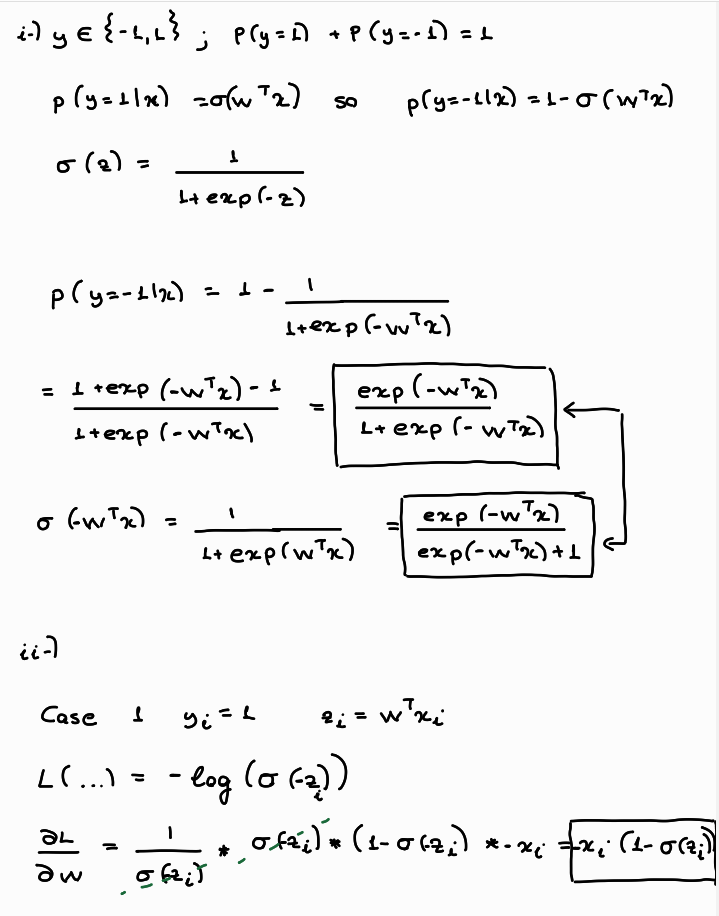 i-) y ∈ {-1,1} ; p(y=1) + p(y=-1) = 1
p(y=1|x) = σ(wᵀx) so p(y=-1|x) = 1 - σ(wᵀx)
σ(z) = 1 / (1+exp(-z))
p(y=-1|x) = 1 - 1 / (1+exp(-wᵀx))
= (1+exp(-wᵀx) - 1) / (1+exp(-wᵀx)) = exp(-wᵀx) / (1+exp(-wᵀx))
σ(-wᵀx) = 1 / (1+exp(wᵀx)) = exp(-wᵀx) / (exp(-wᵀx)+1)
ii-)
Case 1 yᵢ = 1 zᵢ = wᵀxᵢ
L(...) = -log(σ(-zᵢ))
∂L/∂w = 1/σ(-zᵢ) * σ(-zᵢ) * (1-σ(-zᵢ)) * -xᵢ = -xᵢ (1-σ(zᵢ))